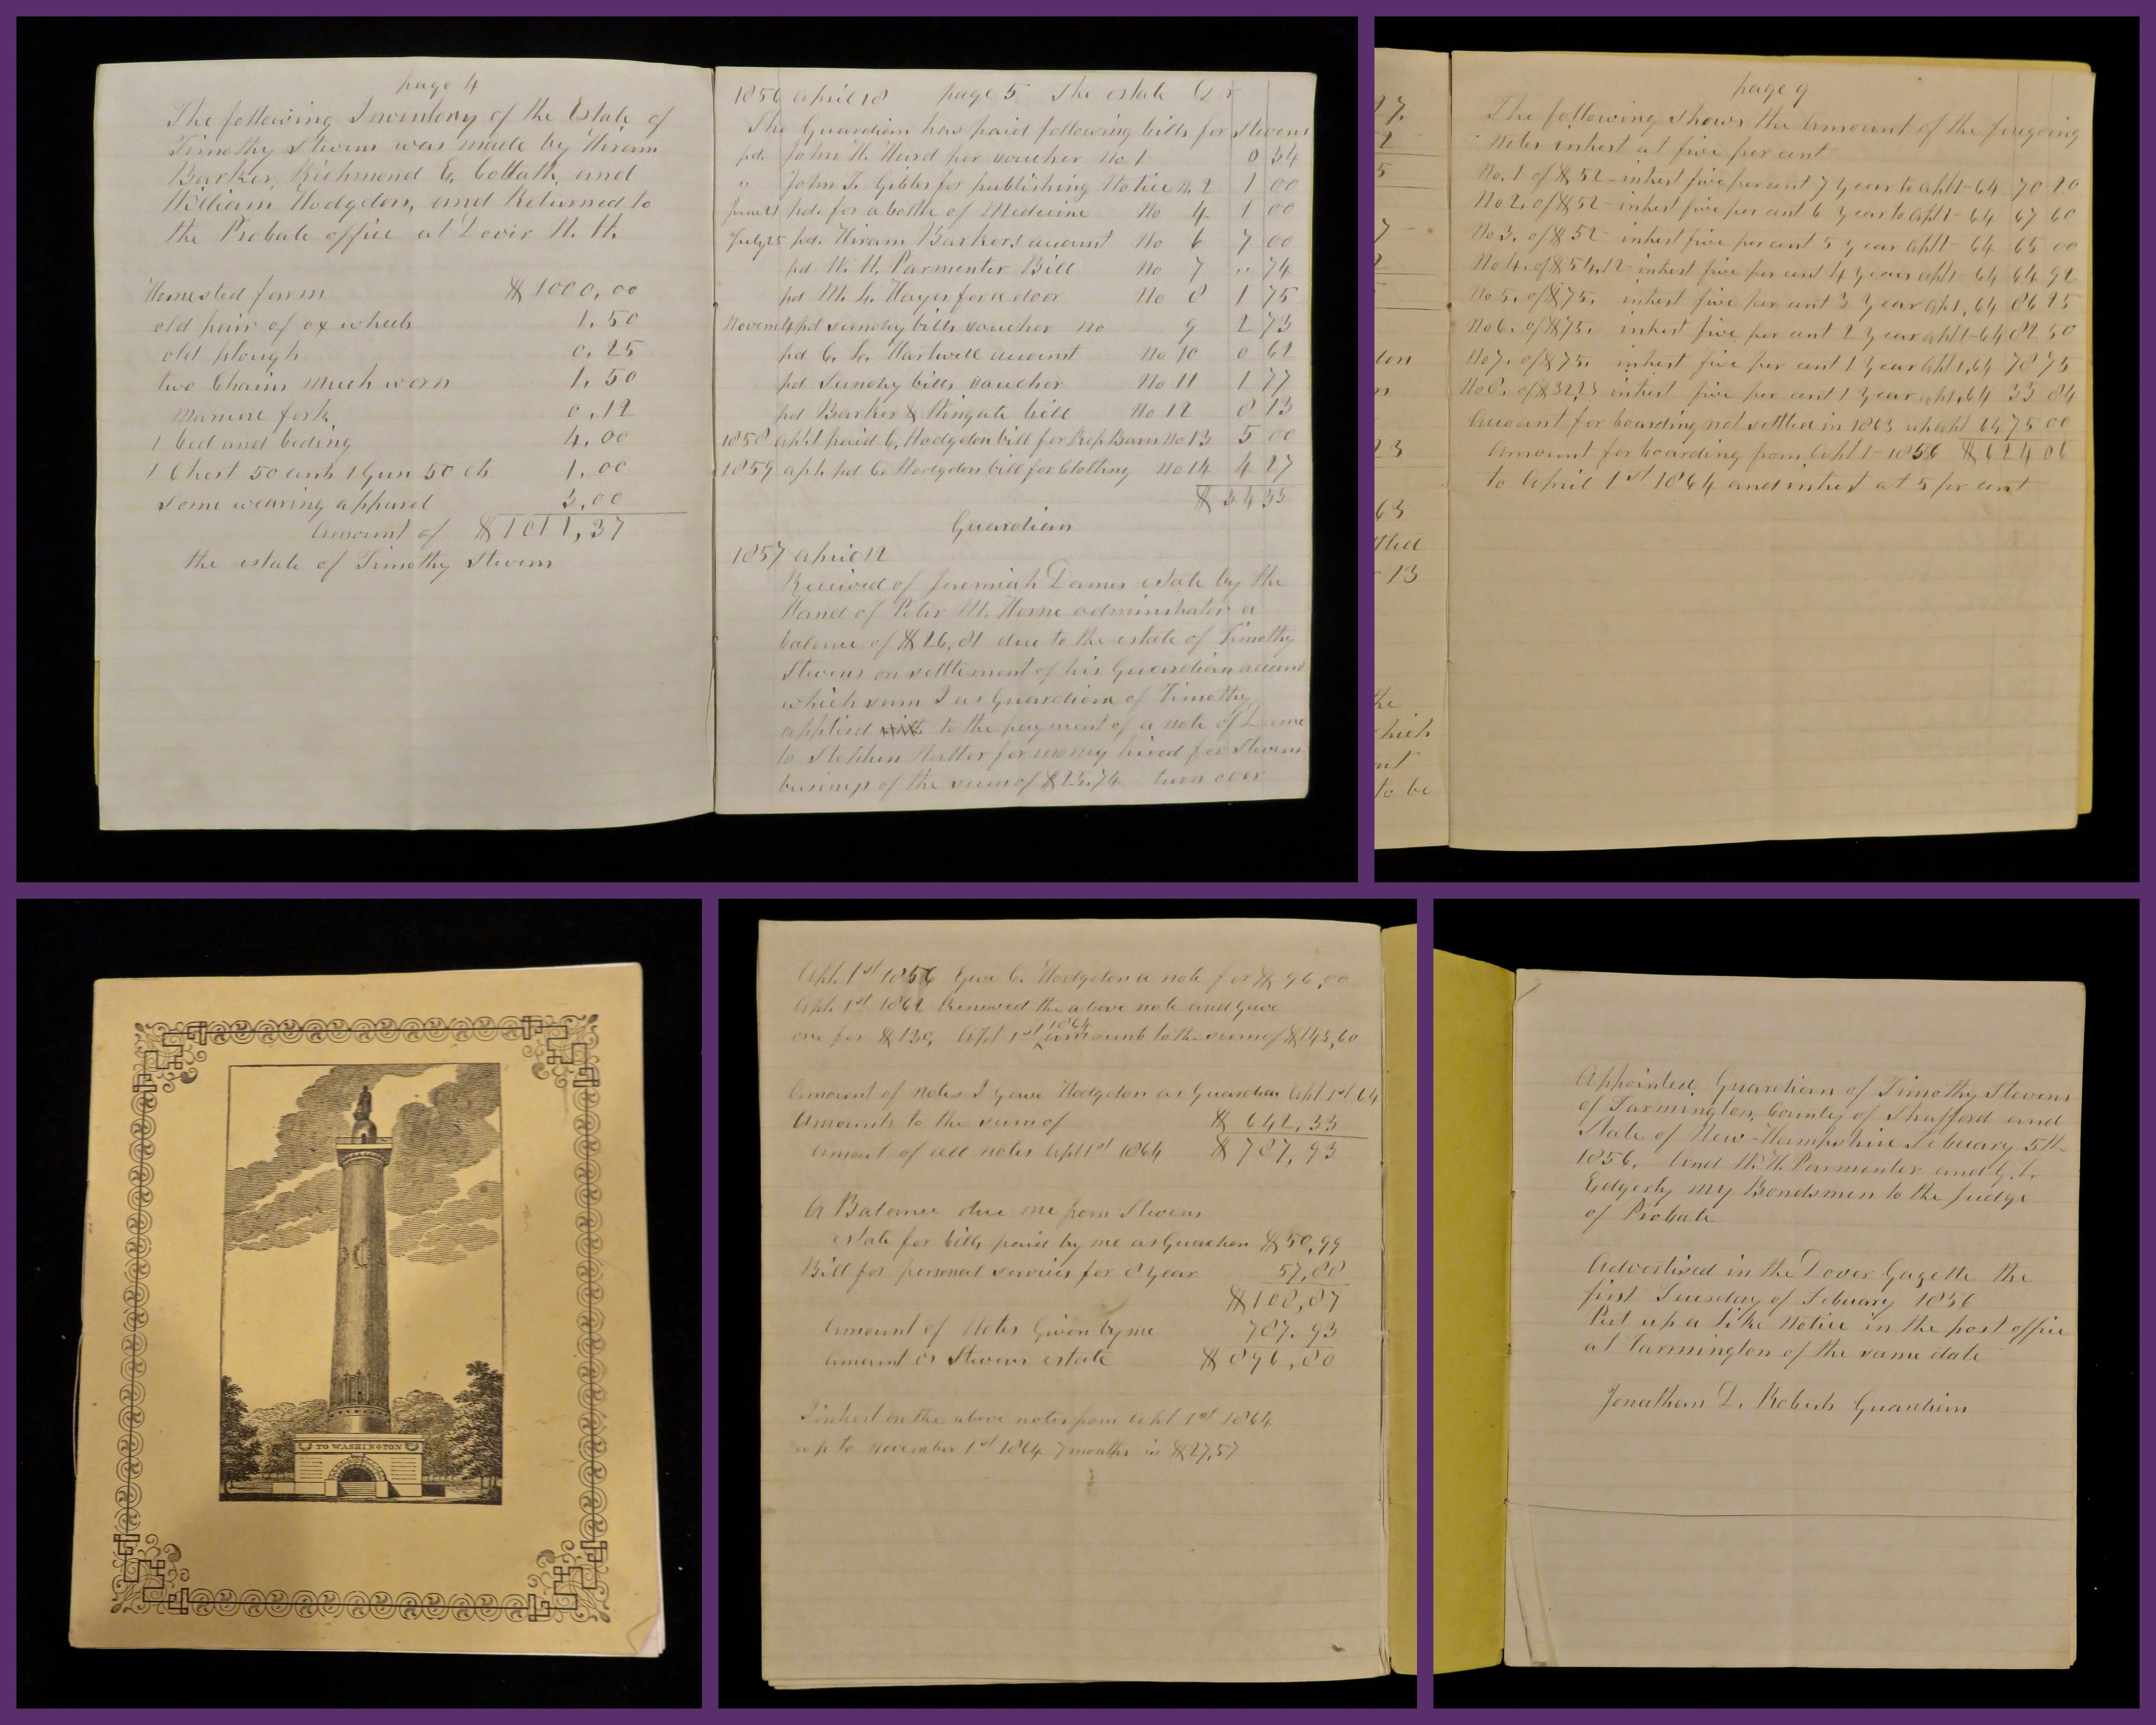 page 4
The following Inventory of the Estate of
Timothy Stevens was made by Hiram
Barker, Richmond E. and
William Hodgdon, and Returned to
the Probate office at Dover N. H.
Homested farm $1000,00
old pair of ox wheels 1,50
old plough 0,25
two Chains much worn 1,50
manure fork 0,12
1 bed and beding 4,00
1 Chest 50 cents 1 Gun 50 cts 1,00
some wearing apparel 3,00
Amount of $1011,37
the estate of Timothy Stevens
1856 april 18 page 5 The estate Dr
The Guardian has paid following bills for Stevens
pd. John H. Hurd per voucher No 1 0 34
" John T. Gibbs for publishing Notice N. 2 1 00
June 21 pd. for a bottle of Medicine No 4 1 00
July 25 pd. Hiram Barkers account No 6 7 00
pd N. H. Parmenter Bill No 7 .. 74
pd M. L. Hayes for a door No 8 1 75
Novem 4 pd sundry bills voucher no 9 2 73
pd C. L. Hartwell account No 10 0 62
pd Sundry bills voucher No 11 1 77
pd Barker & Wingate bill No 12 8 13
1858 apl 1 paid C. Hodgdon bill for Rep Barn No 13 5 00
1859 apl. pd C. Hodgdon bill for Clothing No 14 4 27
$ 34 33
Guardian
1857 april 12
Received of Jeremiah Dames estate by the
Hand of Peter M. Horne administrator a
balance of $26,81 due to the estate of Timothy
Stevens on settlement of his Guardian account
which sum I as Guardian of Timothy
applied to the payment of a note of Dame
to Stephen Nutter for money hired for Stevens
business of the sum of $25.74 turn over
27.
2
5
7
2
23
63
13
hich
to be
page 9
The following shows the amount of the foregoing
Notes intrest at five per cent
No. 1 of $52- intrest five per cent 7 year to apl 1- 64 70 20
No 2. of $52- intrest five per cent 6 year to apl 1- 64 67 60
No 3. of $52- intrest five per cent 5 year apl 1- 64 65 00
No 4. of $54,12- intrest five per cent 4 years apl 1- 64 64 92
No 5. of $75. intrest five per cent 3 year apl 1, 64 86 25
No 6. of $75. intrest five per cent 2 year apl 1- 64 82 50
No 7. of $75. intrest five per cent 1 year apl 1, 64 78 75
No 8. of $32,23 intrest five per cent 1 year apl 1, 64 33 84
Amount for boarding not settled in 1863 up apl 64 75 00
Amount for boarding from apl 1- 1856 $624 06
to April 1st 1864 and intrest at 5 per cent
TO WASHINGTON
Apl. 1st 1856 Gave C. Hodgdon a note for $96,00
Apl. 1st 1862 Renewed the above note and gave
one for $130, Apl 1st 1864 amounts to the sum of $145,60
Amount of notes I Gave Hodgdon as Guardian Apl 1st 64
Amounts to the sum of $ 642,33
Amount of all notes Apl 1st 1864 $ 787,93
A Balance due me from Stevens
estate for bills paid by me as Guardian $50,99
Bill for personal services for 8 year 57,88
$108,87
Amount of Notes Given by me 787.93
Amount vs Stevens estate $896,80
Intrest on the above notes from Apl 1st 1864
up to November 1st 1864 7 months is $27,57
Appointed Guardian of Timothy Stevens
of Farmington, County of Strafford and
State of New-Hampshire Febuary 5th
1856. And N. H. Parmenter and G. L.
Edgerly my Bondsmen to the Judge
of Probate
Advertised in the Dover Gazette the
first Tuesday of Febuary 1856
Put up a like Notice in the post office
at Farmington of the same date
Jonathan D. Roberts Guardian